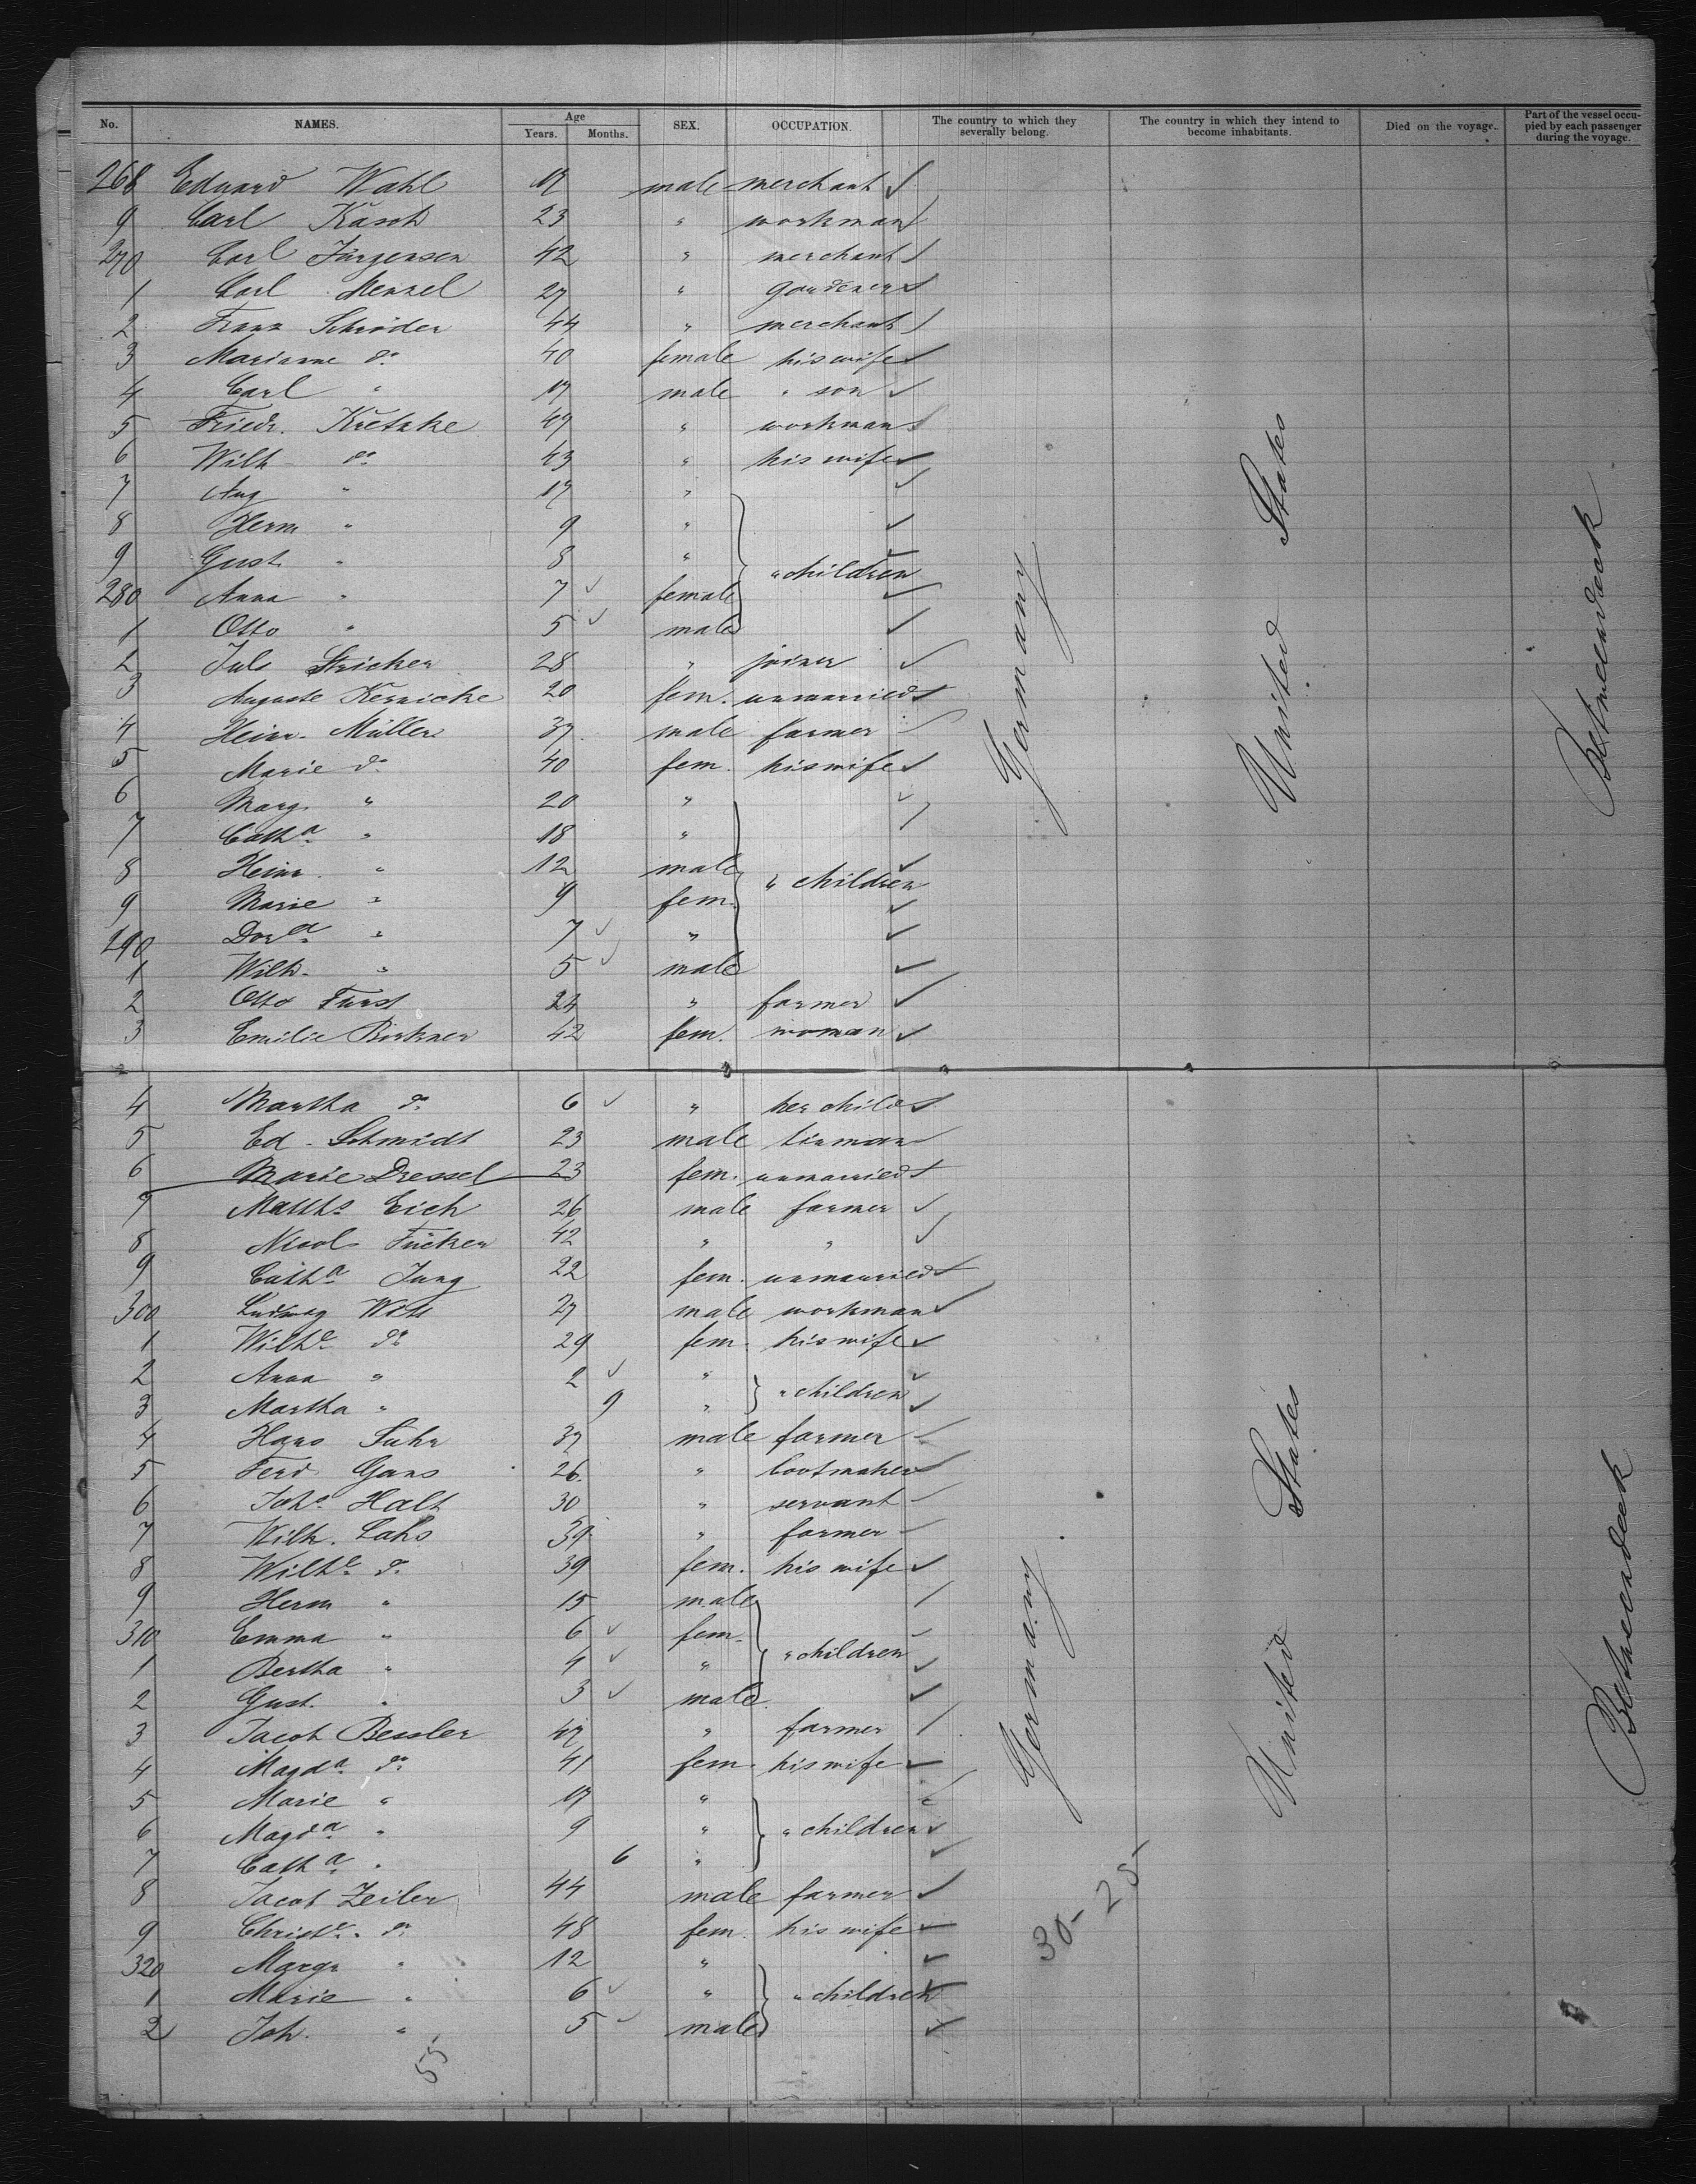 No. NAMES. Age Years. Months. SEX. OCCUPATION. The country to which they severally belong. The country in which they intend to become inhabitants. Died on the voyage. Part of the vessel occupied by each passenger during the voyage.
268 Eduard Wahl 19 male merchant
9 Carl Kasch 23 " workman
270 Carl Jürgensen 42 " merchant
1 Carl Menzel 27 " gardener
2 Franz Schröder 44 " merchant
3 Marianne do 40 female his wife
4 Carl " 17 male " son
5 Friedr. Kretzke 47 " workman
6 Wilh do 43 " his wife
7 Aug " 17 "
8 Herm " 9 "
9 Gust " 8 " " children
280 Anna " 7 female
1 Otto " 5 male
2 Jul Stricker 28 " joiner
3 Auguste Kernicke 20 fem. unmarried
4 Heinr. Müller 37 male farmer
5 Marie do 40 fem. his wife
6 Marg. " 20 "
7 Catha " 18 "
8 Heinr. " 12 male " children
9 Marie " 9 fem.
290 Dora " 7 "
1 Wilh. " 5 male
2 Otto Fürst 24 " farmer
3 Emilie Birkner 42 fem. woman
Germany
United States
Betweendeck
4 Martha do 6 " her child
5 Ed. Schmidt 23 male tinman
6 Marie Dressel 23 fem. unmarried
7 Matths Eich 26 male farmer
8 Nicol Fücker 42 " "
9 Catha Jung 22 fem. unmarried
300 Ludwig Witt 27 male workman
1 Wilhe do 29 fem. his wife
2 Anna " 2 "
3 Martha " 9 " " children
4 Hans Suhr 37 male farmer
5 Ferd Gans 26 " bootmaker
6 Johs Halt 30 " servant
7 Wilh. Lahs 39 " farmer
8 Wilhe do 39 fem. his wife
9 Herm " 15 male
310 Emma " 6 fem.
1 Bertha " 4 " " children
2 Gust. " 3 male
3 Jacob Bessler 47 " farmer
4 Magda do 41 fem. his wife
5 Marie " 19 "
6 Magda " 9 " " children
7 Catha " 6 "
8 Jacob Zeiler 44 male farmer
9 Christe. do 48 fem. his wife
320 Margr " 12 "
1 Marie " 6 " " children
2 Joh. " 5 male
Germany
United States
Betweendeck
30- 25-
55